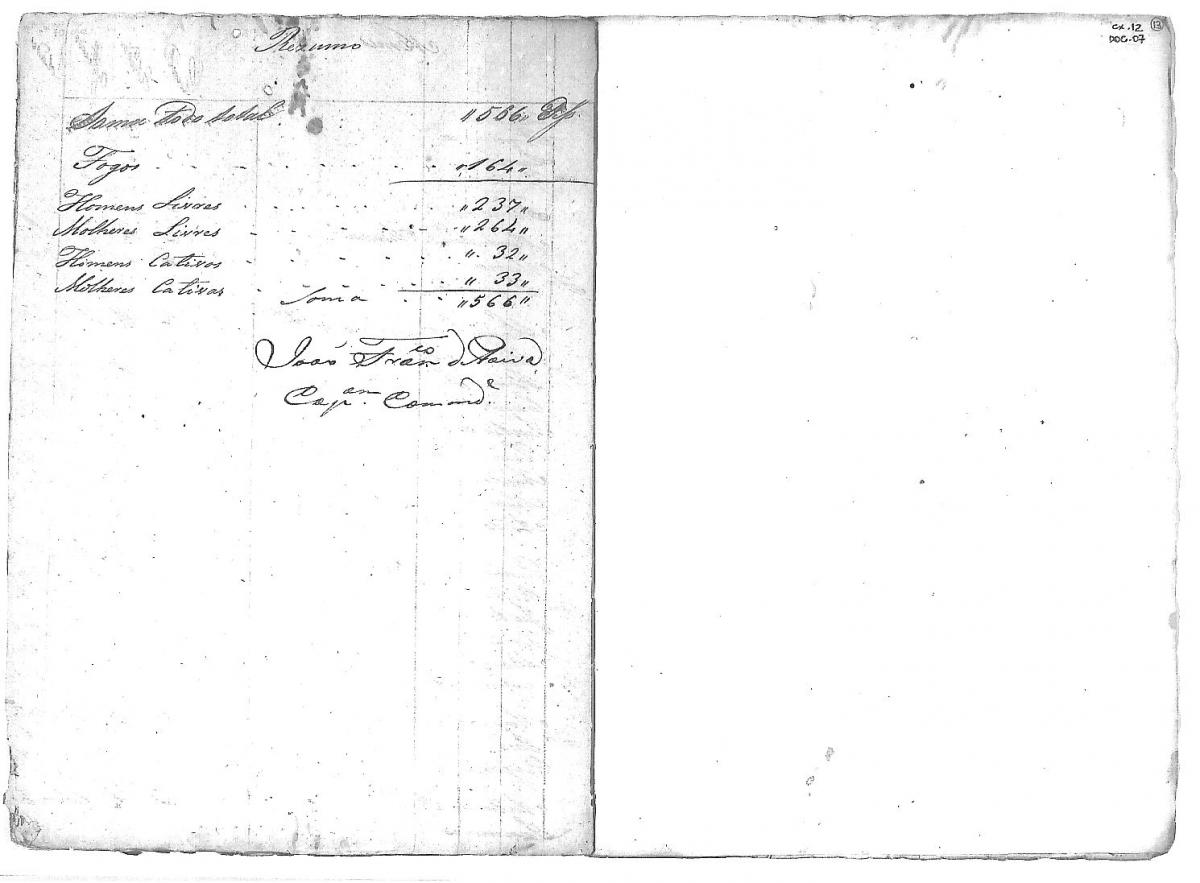 Rezumo
Soma Todo total "566" Pes.
Fogos "164"
Homens Livres "237"
Molheres Livres "264"
Homens Cativos " 32"
Molheres Cativas " 33"
Soma "566"
João Fran.co d Paiva
Cap.am Comand.e
CX.12 13
DOC.07